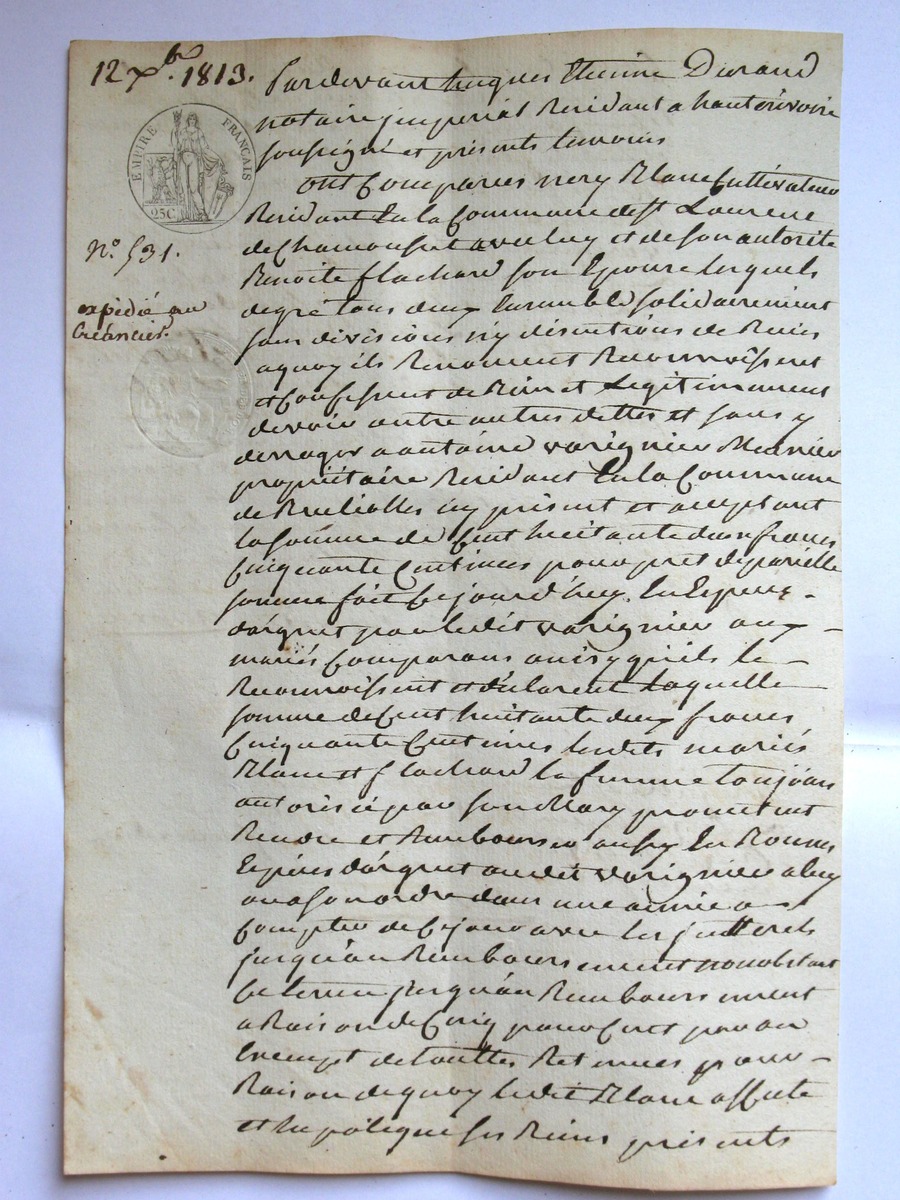 12 Xbr. 1813.
EMPIRE FRANÇAIS
25C
N°. 531.
expédié au
Créancier.
Pardevant Jacques Etienne Durand
notaire jmperial Residant a hauterivoire
soussigné et présents temoins
ont Comparus Blanc Cultivateur
Residant En la Commune de St Laurent
de Chamousset avec luy et de son autorite
Benoite flachard son Epouse lesquels
de gré tous deux Ensemble solidairement
sans divisions ny discutions de Biens
a quoy ils Renoncent Reconnoissent
et Confessent de Bien et Legitimement
devoir antre autres dettes et sans y
derroger a antoine varignier Meunier
propriétaire Residant En la Commune
de Brullioles icy présent et acceptant
la somme de Cent huitante deux francs
Cinquante Centimes pour pret de pareille
somme fait Ce jourd'huy En Especes
d'argent par ledit varignier aux
mariés Comparans ainsy qu'ils le
Reconnoissent et déclarent Laquelle
somme de Cent huitante deux francs
Cinquante Centimes lesdits mariés
Blanc et flachard la femme toujours
autorisée par son Mary promettent
Rendre et Rembourser aussy En Bonnes
Espèces d'argent audit varignier a luy
ou a son ordre dans une année a
Compter de Ce jour avec les jntterets
jusqu'au Remboursement nonobstant
Ce terme jusqu'au Remboursement
a Raison de Cinq pour Cent par an
Exempt de touttes Retenues pour
Raison de quoy ledit Blanc affecte
et hypotèque ses Biens présents